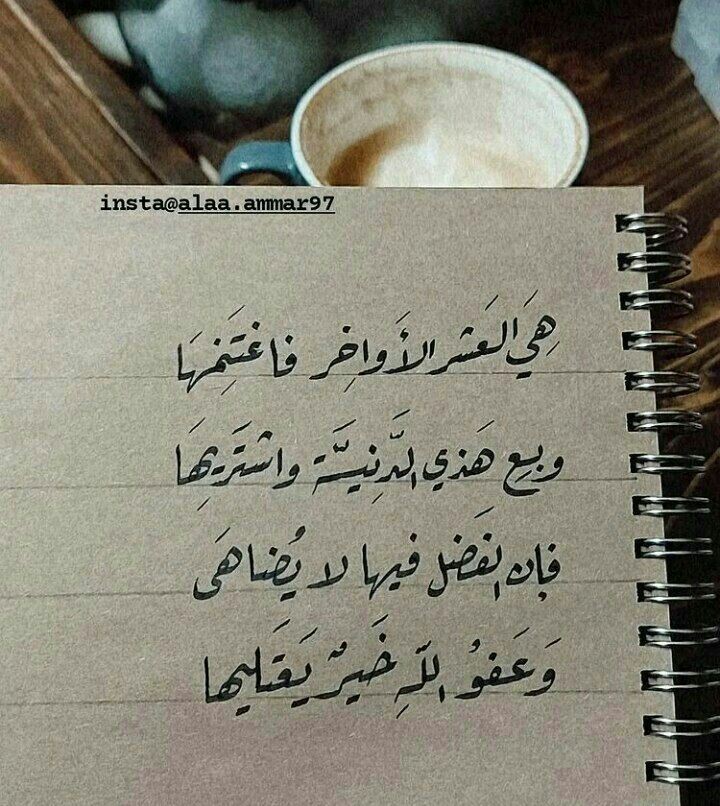 insta@alaa.ammar97
هِيَ العَشر الأَواخِر فاغتَنِمْهَا
وبِعِ هَذي الدَّنِيَّة واشتَرِيهَا
فإن الفَضل فيها لا يُضاهَى
وَعَفوُ اللهِ خَيرٌ